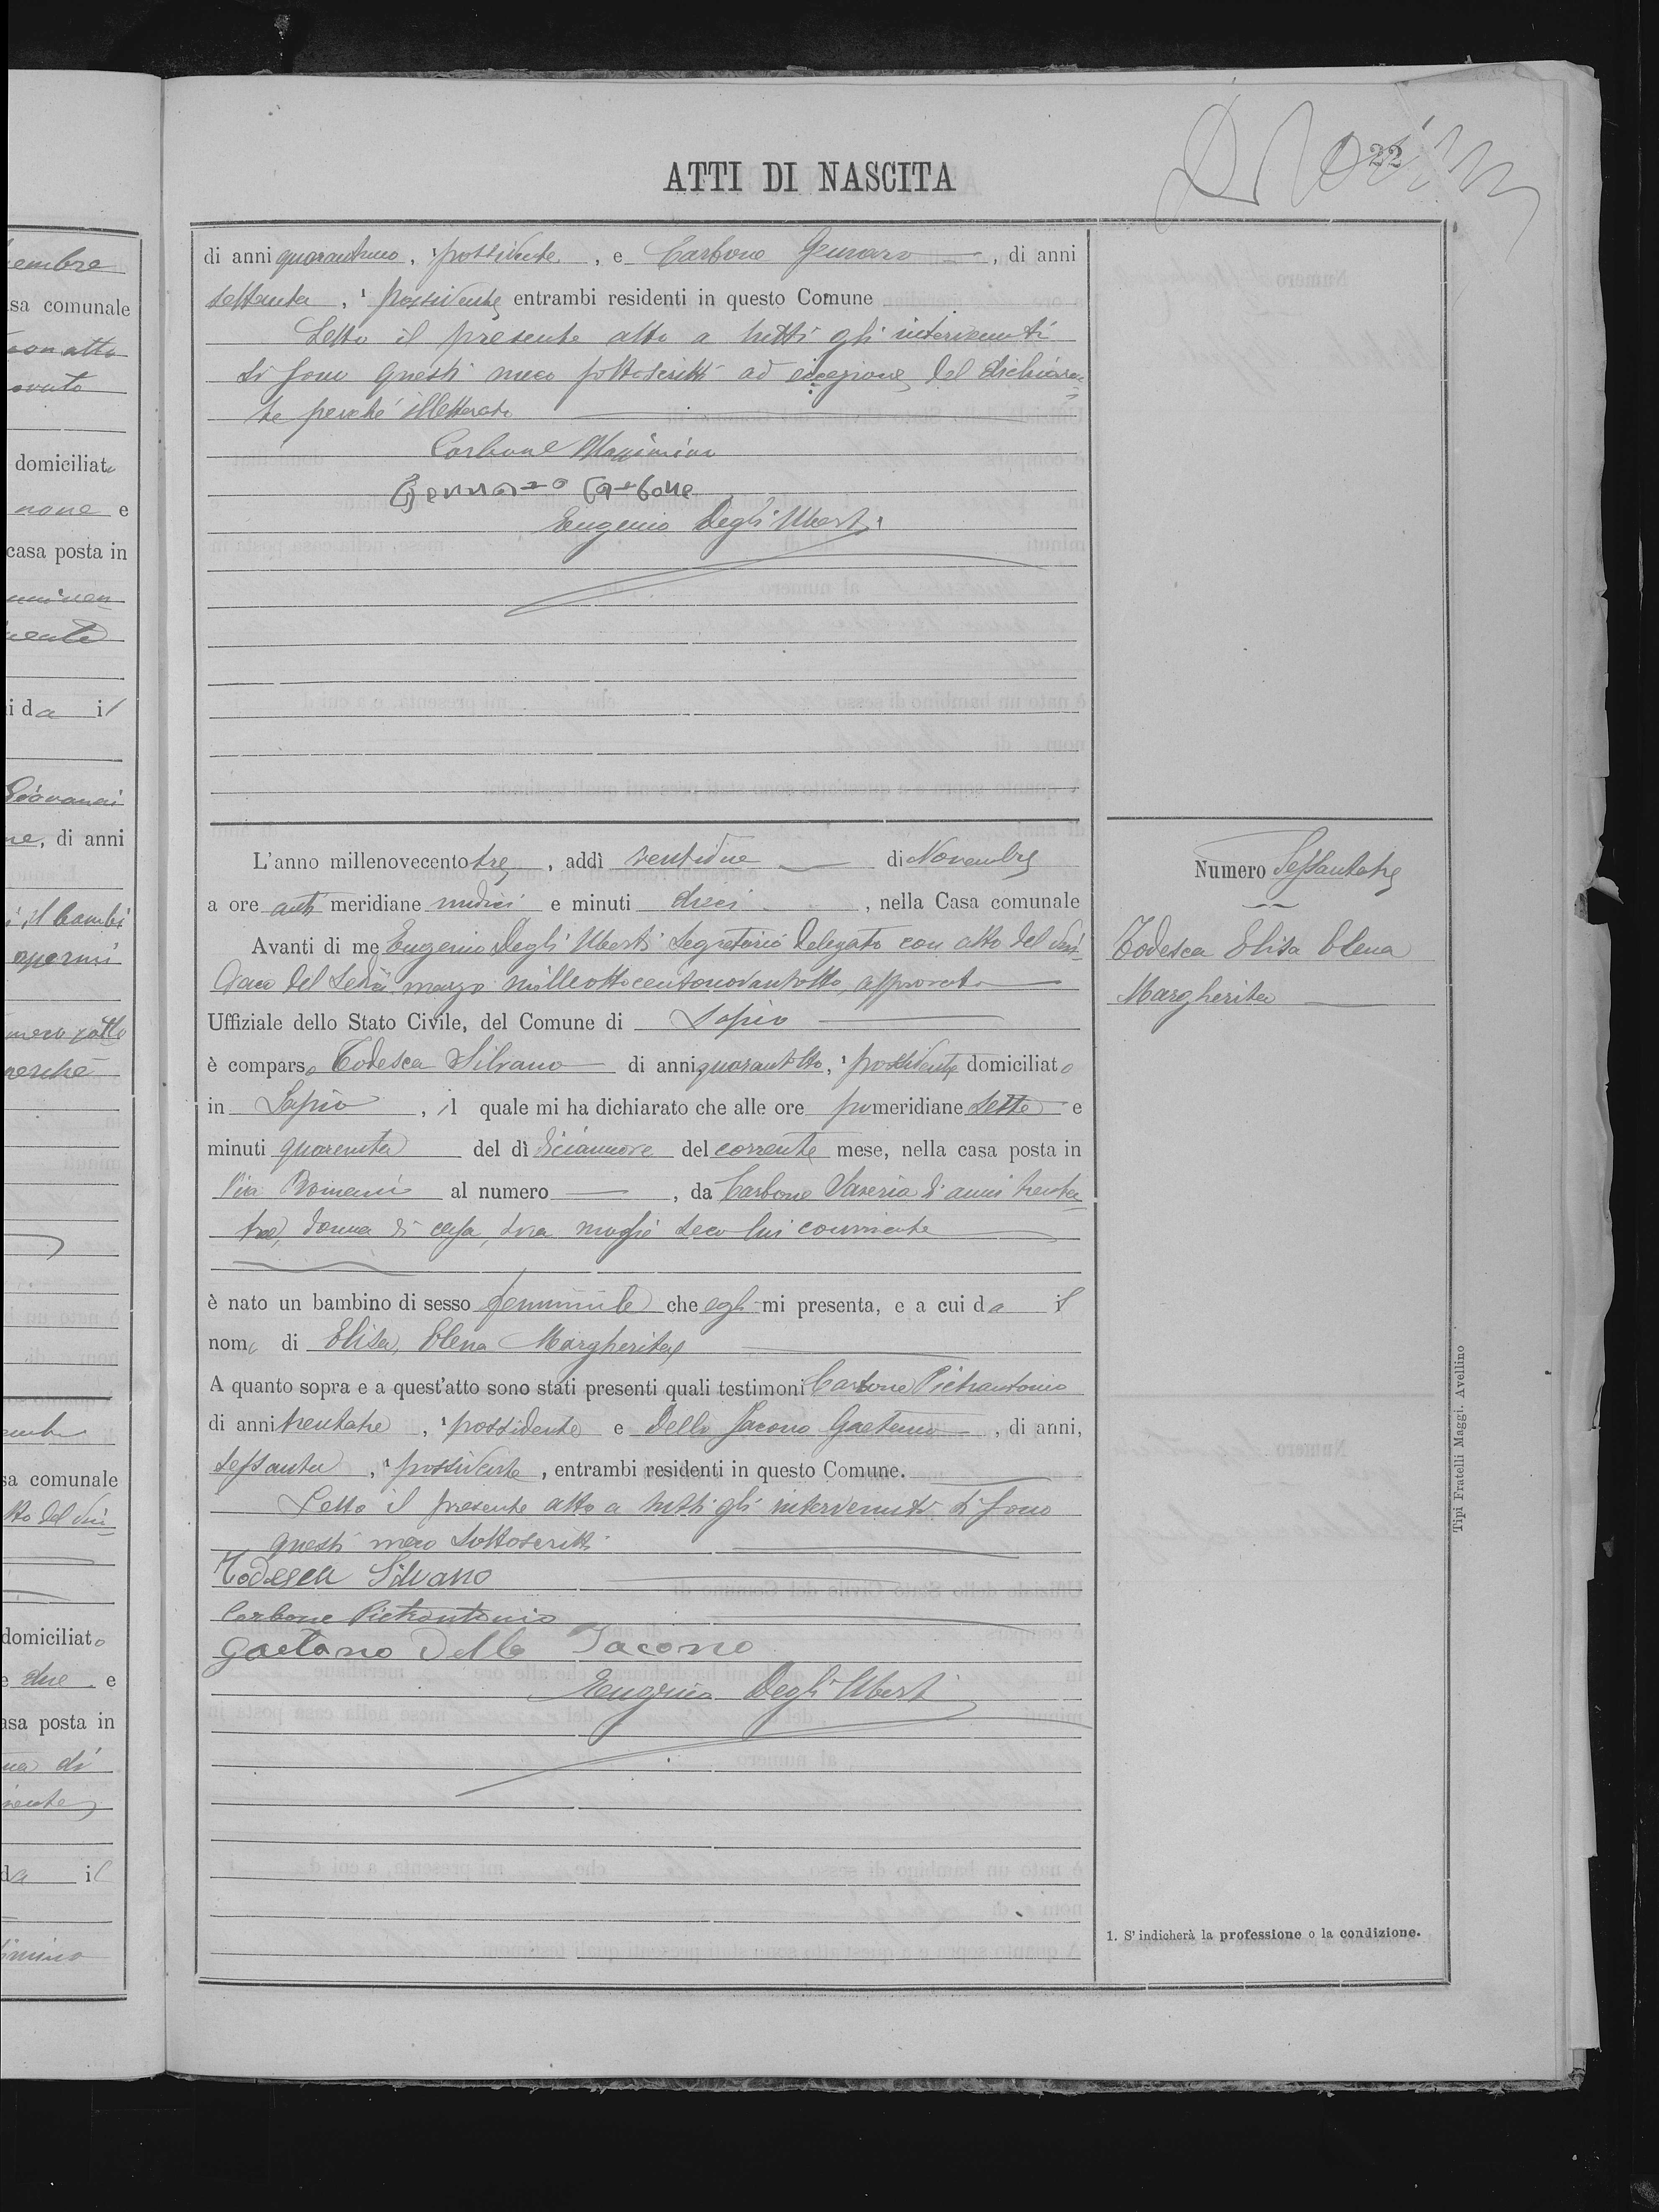 ATTI DI NASCITA
22
di anni quarantuno, ¹ possidente, e Carbone Gennaro, di anni
settanta, ¹ possidente entrambi residenti in questo Comune
Letto il presente atto a tutti gli intervenuti
si sono questi meco sottoscritti ad eccezione del dichiaran
te perché illetterato
Carbone Massimino
Gennaro Carbone
Eugenio Degli Uberti
L'anno millenovecentotre, addì ventidue di Novembre
a ore anti meridiane undici e minuti dieci, nella Casa comunale
Avanti di me Eugenio Degli Uberti Segretario Delegato con atto del Sin-
daco del sedici marzo milleottocentonovantotto, approvato
Uffiziale dello Stato Civile, del Comune di Lapio
è comparso Todesca Silvano di anni quarantotto, ¹ possidente domiciliato
in Lapio, il quale mi ha dichiarato che alle ore pomeridiane sette e
minuti quaranta del dì diciannove del corrente mese, nella casa posta in
Via Romani al numero, da Carbone Saveria di anni trenta
tre, donna di casa, sua moglie seco lui convivente
è nato un bambino di sesso femminile che egli mi presenta, e a cui da il
nome di Elisa, Elena Margherita
A quanto sopra e a quest'atto sono stati presenti quali testimoni Carbone Pietrantonio
di anni trentatre, ¹ possidente e Dello Jacono Gaetano, di anni,
sessanta, ¹ possidente, entrambi residenti in questo Comune.
Letto il presente atto a tutti gli intervenuti si sono
questi meco sottoscritti
Todesca Silvano
Carbone Pietrantonio
Gaetano Dello Jacono
Eugenio Degli Uberti
Numero Sessantatre
Todesca Elisa Elena
Margherita
1. S'indicherà la professione o la condizione.
Tipi Fratelli Maggi. Avellino